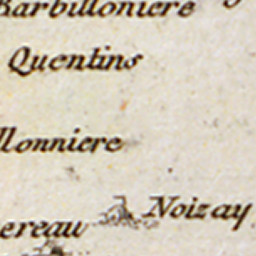 Barbilloniere
Quentins
llonniere
Noizay
ereau